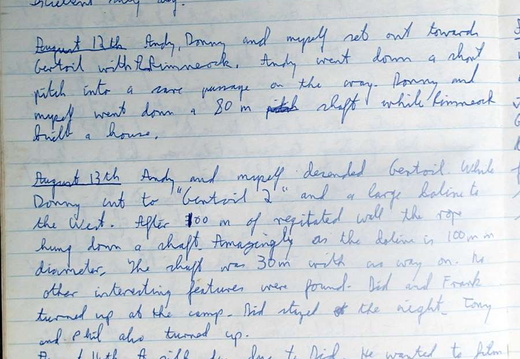 August 12th Andy, Donny and myself set out towards
Gertoil with Rimneock. Andy went down a short
pitch into a cave passage on the way. Donny and
myself went down a 80 m shaft while Rimneock
built a house.
August 13th Andy and myself desended Gertoil. While
Donny cut to "Gertoil 2" and a large doline to
the West. After 100 m of vegitated wall the rope
hung down a shaft. Amazingly as the doline is 100 m in
diameter. The shaft was 30m with no way on. No
other interesting features were found. Did and Frank
turned up at the camp. Did stayed the night. Tony
and Phil also turned up.
due to Did. He wanted to film!